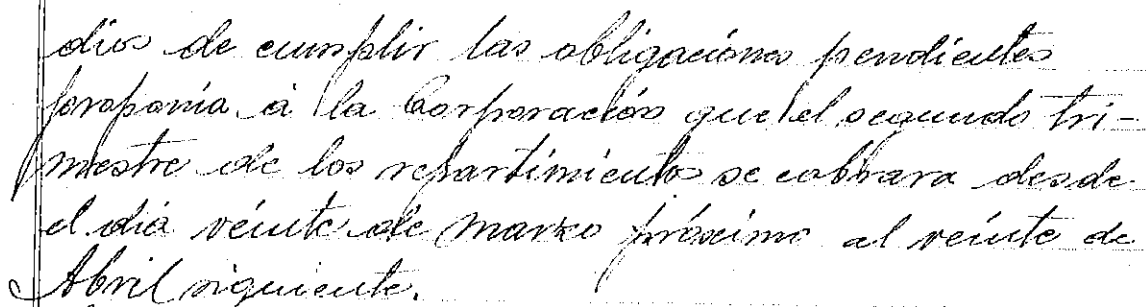 dios de cumplir las obligaciones pendientes
proponia á la Corporación que el segundo tri-
mestre de los repartimientos se cobrara desde
el dia veinte de marzo próximo al veinte de
Abril siguiente.